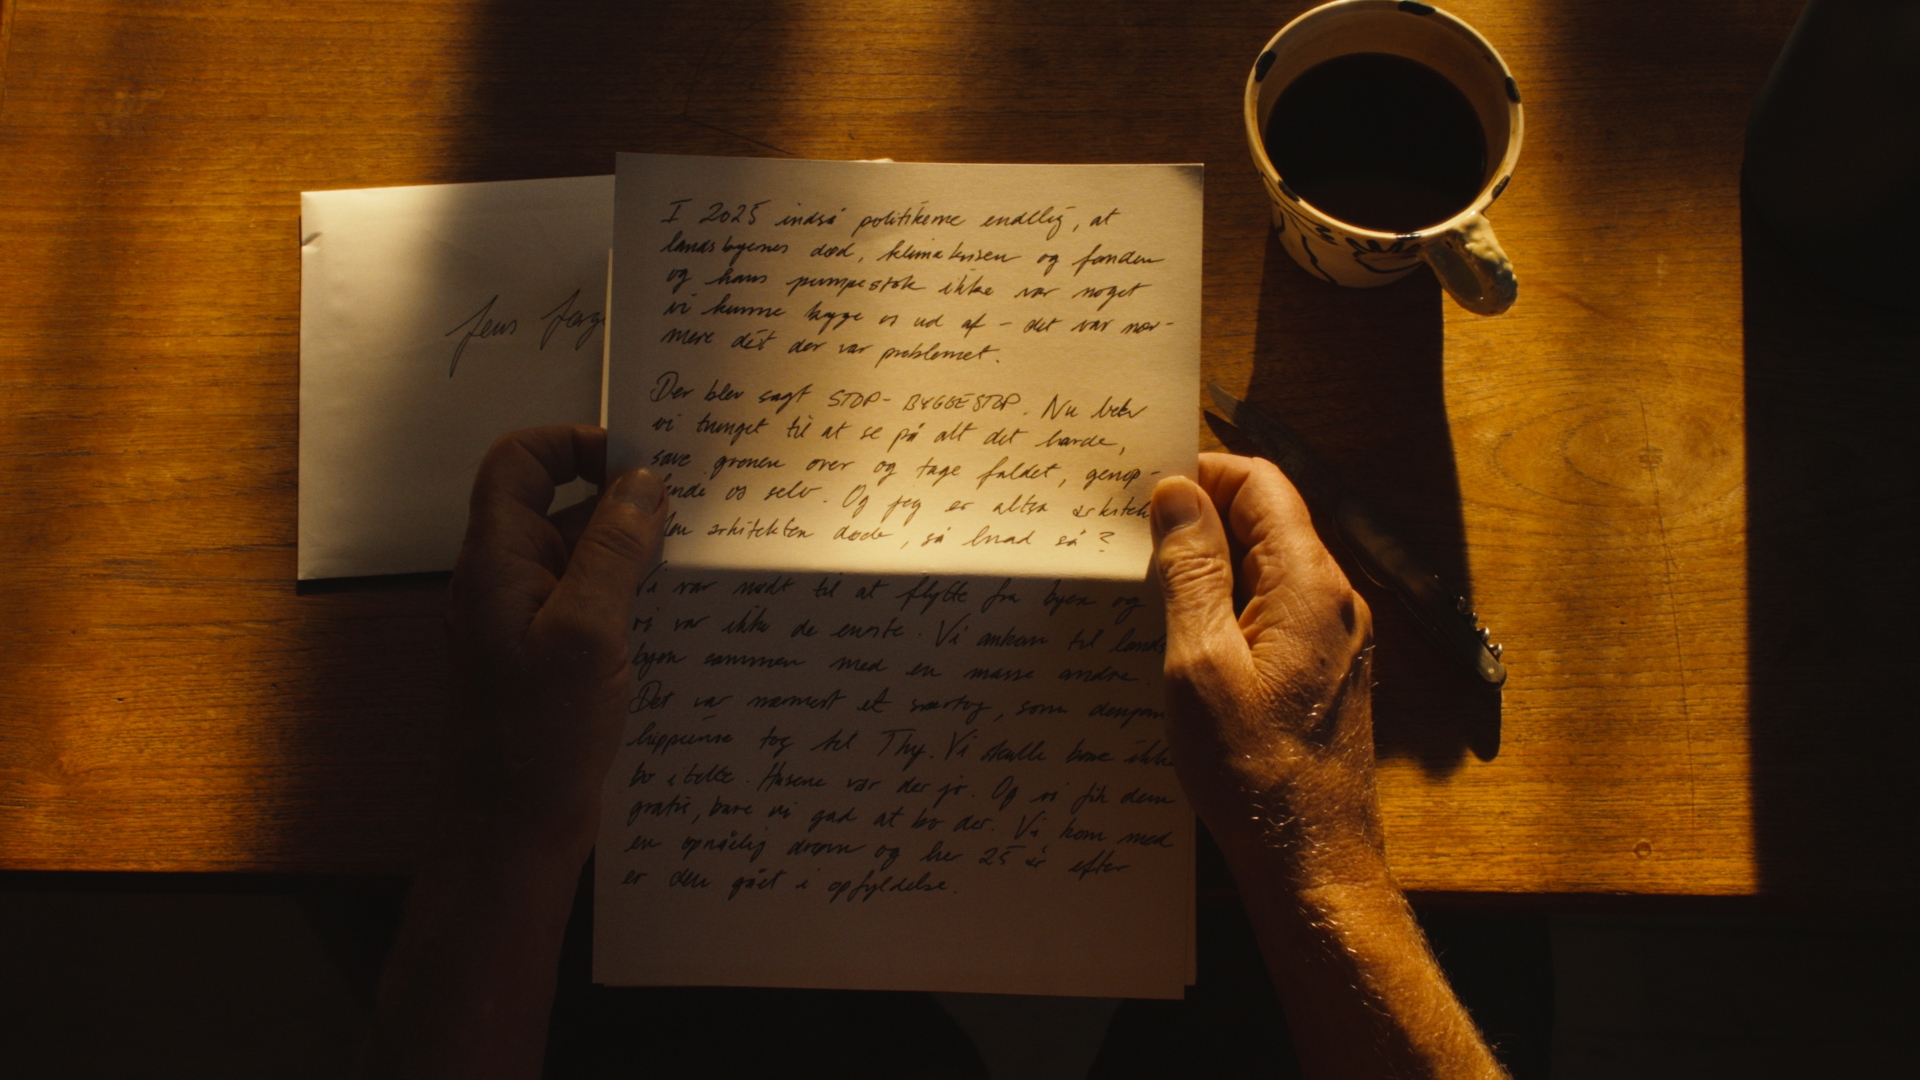 Jens
I 2025 indså politikerne endelig, at
landsbyernes død, klimakrisen og fanden
og hans pumpestok ikke var noget
vi kunne bygge os ud af – det var nær-
mere dét der var problemet.
Der blev sagt STOP - BYGGESTOP. Nu blev
vi tvunget til at se på alt det harde,
save grenen over og tage faldet, genop-
os selv. Og jeg er altså
arkitekten døde, så hvad så?
Vi var nødt til at flytte fra byen og
vi var ikke de eneste. Vi ankom til lands
byen sammen med en masse andre.
Det var nærmest et særtog, som dengang
hippierne tog til Thy. Vi skulle bare ikke
bo i telte. Husene var der jo. Og vi fik dem
gratis, bare vi gad at bo der. Vi kom med
en opnåelig drøm og her 25 år efter
er den gået i opfyldelse.